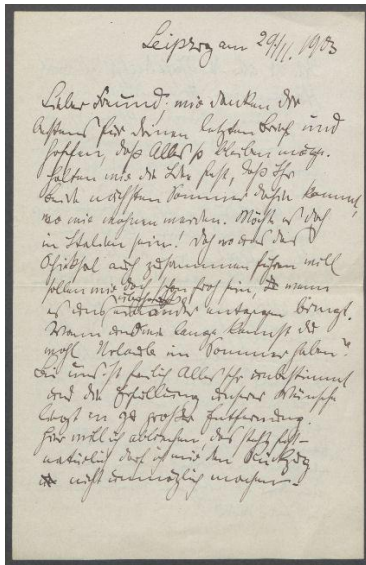 Leipzig am 29/11. 1903
Lieber Freund! wir danken Dir
bestens für Deinen letzten Brief und
hoffen, daß Alles so bleiben möge.
Halten wir die Idee fest, daß Ihr
beide nächsten Sommer dahin kommt,
wo wir wohnen werden. Möchte es doch
in Italien sein! Doch wo uns das
Schicksal auch zusammen führen will
sollen wir doch schon froh sein, wenn
es uns einander entgegen bringt.
Wann und wie lange kannst Du
wohl Urlaub im Sommer haben?
Bei uns ist freilich Alles sehr unbestimmt
und die Erfüllung unserer Wünsche
liegt in großer Entfernung.
Hier will ich abbrechen, das steht fest –
natürlich darf ich mir den Rückzug
nicht unmöglich machen.